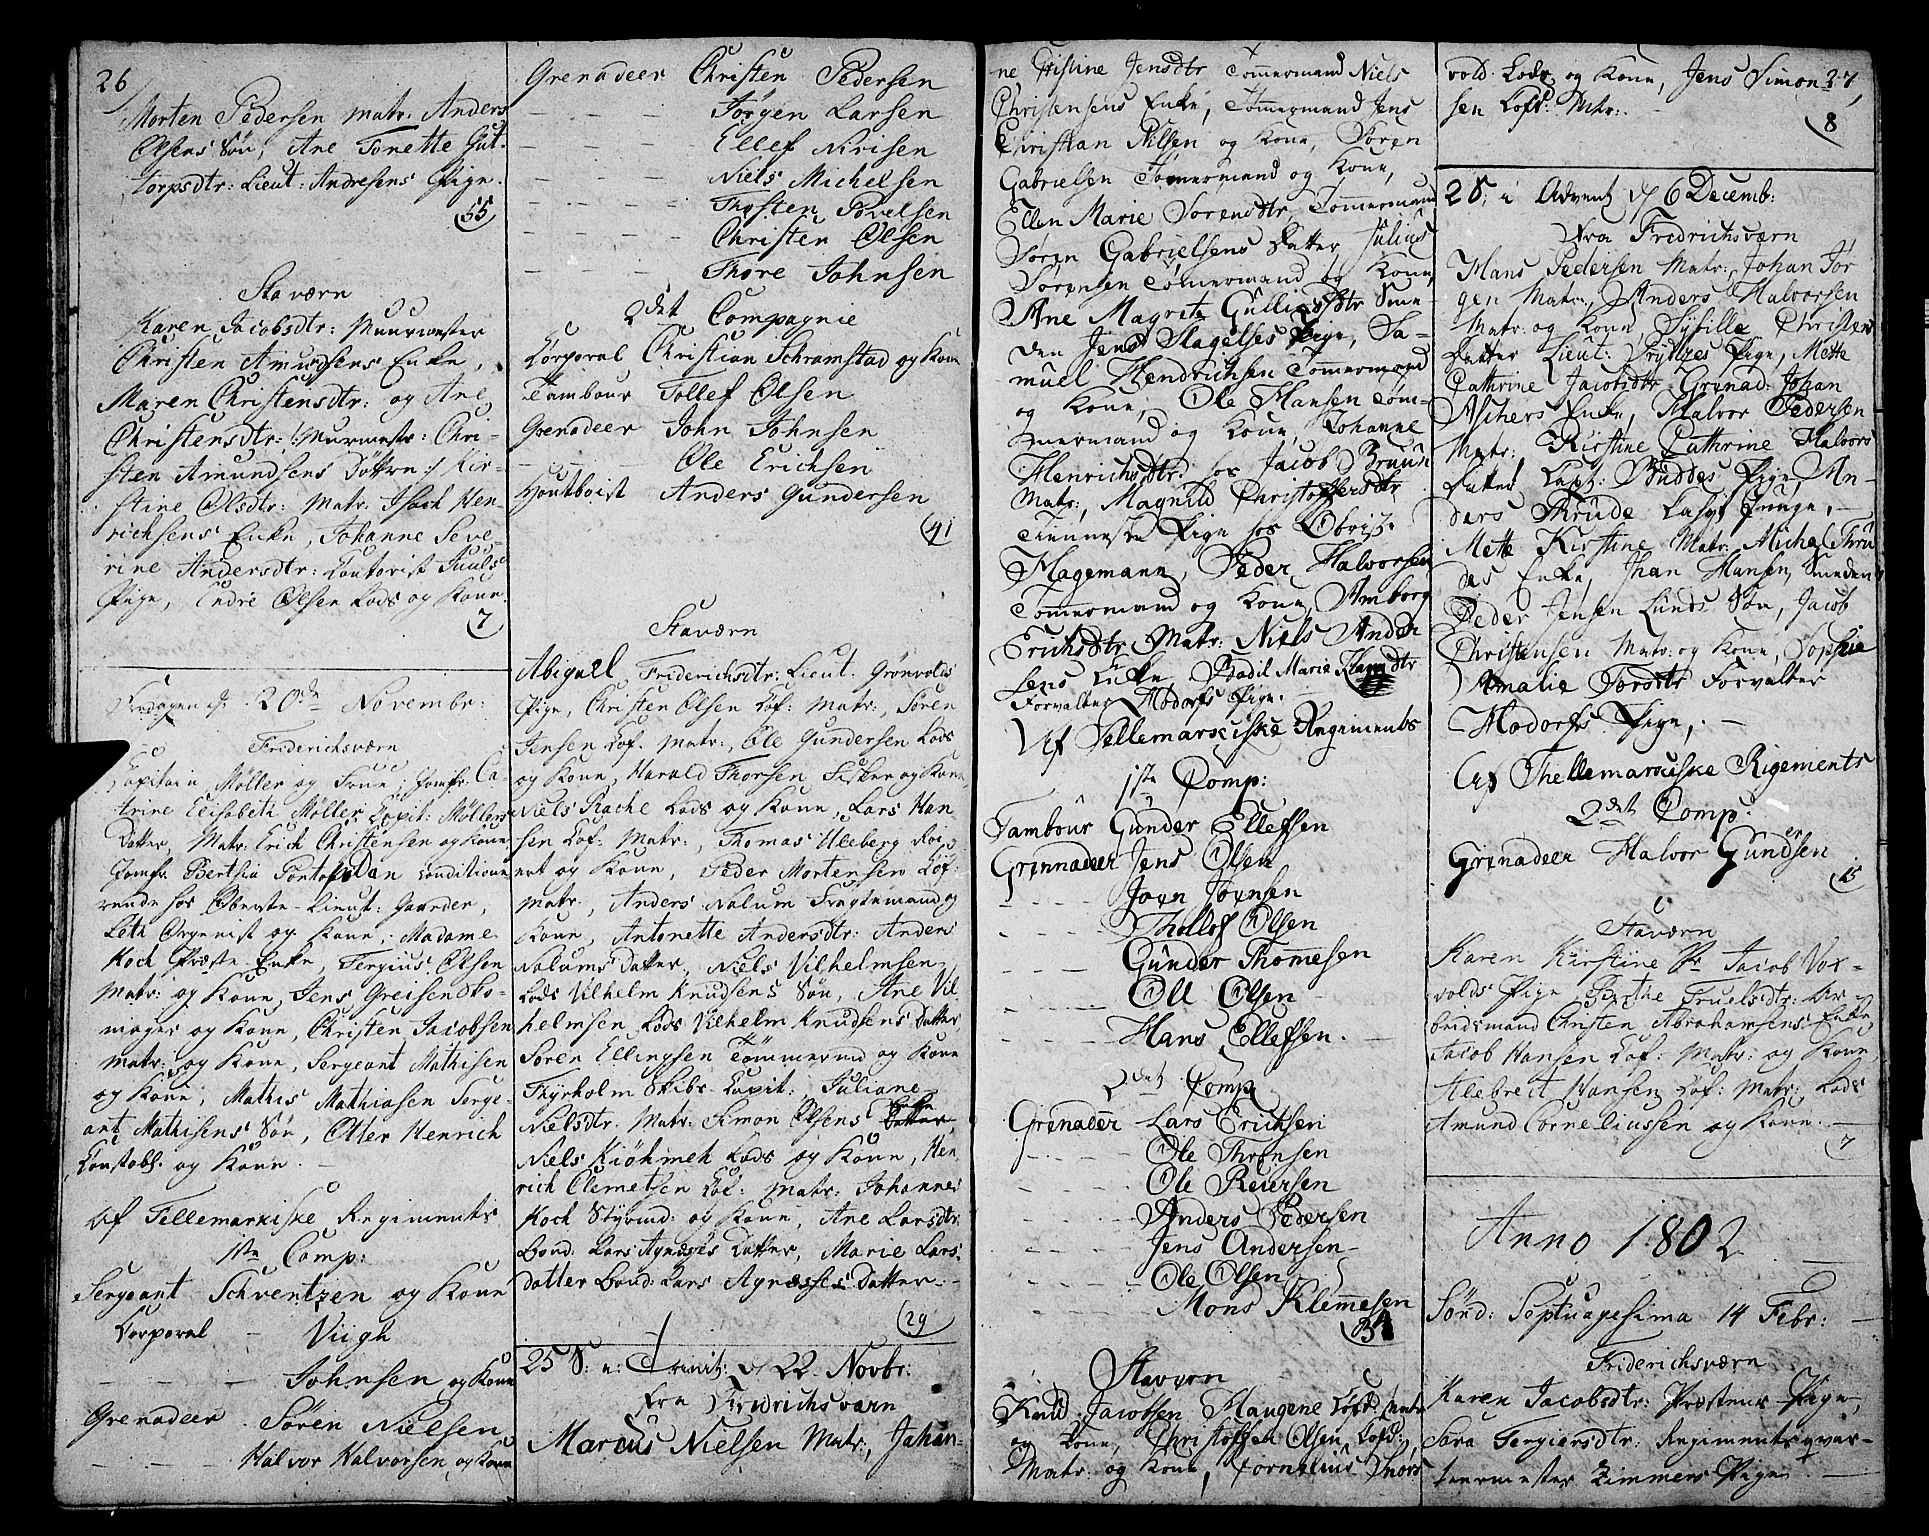 26
Morten Pedersen Matr: Anders
Olsens Søn, Ane Tonette Gut-
torpsdtr: Lieut: Andresens Pige.
55
Staværn
Karen Jacobsdtr: Muurmester
Christen Amundsens Enke,
Maren Christensdtr: og Ane
Christensdtr: /: Muurmestr: Chri-
sten Amundsens Døttre :/ Kir-
stine Olsdtr: Matr: Isach Hen-
richsens Enke, Johanne Seve-
rine Andersdtr: Contorist Juuls
Pige, Endre Olsen Lods og Kone.
7
Fredagen d. 20de Novembr:
Friderichsværn
Capitain Møller og Frue, Jomfr. Ca-
trine Elisabeth Møller Capit: Møllers
Datter, Matr: Erich Christensen og Kone
Jomfr. Berthia Pontoppidan Conditione-
rende hos Oberste-Lieut: Gaarder,
Leth Organist og Kone, Madame
Koch Præste-Enke, Tergius Olsen
Matr: og Kone, Jens Greisen Sko-
mager og Kone, Christen Jacobsen
Matr: og Kone, Sergeant Mathisen
og Kone, Mathis Mathiasen Serge-
ant Mathisens Søn, Otter Henrich
Constabl. og Kone.
Af Tellemarkiske Regiments
1ste Comp:
Sergeant Schventzen og Kone
Corporal - Viigh
- - - Johnsen og Kone
Grenadeer Søren Nielsen
- - - Halvor Halvorsen og Kone
Grenadeer Christen Pedersen
- - - Jørgen Larsen
- - - Ellef Nirisen
- - - Niels Michelsen
- - - Thosten Povelsen
- - - Christen Olsen
- - - Thore Johnsen
2det Compagnie
Corporal Christian Schramstad og Kone
Tambour Tollef Olsen
Grenadeer John Johnsen
- - - Ole Erichsen
Houtboist Anders Gundersen
41
Staværn
Abigaell Friderichsdtr: Lieut. Grønvolds
Pige, Christen Olsen Lof: Matr:, Søren
Jensen Lof. Matr:, Ole Gundersen Lods
og Kone, Harald Thorsen Fisker og Kone
Niels Rache Lods og Kone, Lars Han-
sen Lof: Matr:, Thomas Heeberg
og Kone, Peder Mortensen Lof:
Matr:, Anders Nalum Fragtemand og
Kone, Antonette Andersdtr: Anders
Nalums Datter, Niels Vilhelmsen
Lods Vilhelm Knudsens Søn, Ane Vil-
helmsen Lods Vilhelm Knudsens Datter
Søren Ellingsen Tømmermd og Kone
Thyrholm Skibs-Capit:, Juliane
Nielsdtr: Matr: Simon Olsens Enke
Niels Kiøhmeh Lods og Kone, Hen-
rich Clemetsen Lof: Matr: Johannes
Koch Styrmd: og Kone, Ane Larsdtr
Bond: Lars Agnæses Datter, Marie Lars-
datter Bond: Lars Agnæsses Datter.
29
25 S: n: Trinit: d. 22 Novbr:
Fra Fridrichsværn
Marcus Nielsen Matr:, Johan-
ne Cristine Jensdtr Tømermand Niels
Christensens Enke, Tømermand Jens
Christian Nilsen og Kone, Søren
Gabrielsen Tømermand og Kone,
Ellen Marie Sørensdtr, Tømermand
Søren Gabrielsens Datter Julius
Sørensen Tømermand og Kone,
Ane Magrete Gulliesdtr Sme-
den Jens Slagelses Pige, Sa-
muel Hendrichsen Tømermand
og Kone, Ole Hansen Tøm-
mermand og Kone, Johanne
Henrichsdtr hos Jacob Bruun
Matr:, Magnild Christophersdtr
Tieneste Pige hos Obrist
Hagemann, Peder Halvorsen
Tømermand og Kone, Amborg
Erichsdtr Matr: Niels Ander-
sens Enke, Bodil Marie Hansdtr
Forvalter Modorfs Pige.
Af Tellemarkiske Regiments
1ste Comp:
Tambour Gunder Ellefsen
Grennadeer Jens Olsen
- - - Joen Joensen
- - - Thollof Olsen
- - - Gunder Thomesen
- - - Oll Olsen
- - - Hans Ellefsen.
2det Comp
Grenadeer Lars Erichsen
- - - Ole Thronsen
- - - Ole Reiersen
- - - Anders Pedersen
- - - Jens Andersen
- - - Ole Olsen
- - - Mons Klemmesen
Staværn
Knud Jacobsen Haugene Lofd: Matr
og Kone, Christoffer Olsen Lofd:
Matr: og Kone, Cornelius Thors
27
vold Lods og Kone, Jens Simon-
sen Lofd: Mtr:.
8
2 S: i Advent d. 6 Decemb:
Fra Fredrichsværn
Hans Pedersen Matr:, Johan Jør
gen Matr:, Anders Halvorsen
Matr: og Kone, Sysille Christens
Datter Lieut: Frydzes Pige, Mette
Cathrine Jacobsdtr Grenad: Johan
Aschers Enke, Halvor Pedersen
Matr: Kirstine Cathrine Halvors
Datter Capt: Buddes Pige, An-
ders Thrude Dreng,
Mette Kirstine Matr: Michel Thru
des Enke, Jhan Hansen, Smeden
Peder Jensen Lunds Søn, Jacob
Christensen Matr: og Kone, Sophie
Amalie Torsdtr Forvalter
Modorfs Pige,
Af Thellemarkiske Rigements
2det Comp:
Grenadeer Halvor Gundersen
15
Staværn
Karen Kirstine Jacob Vox-
volds Pige Birthe Truelsdtr: Ar-
beidsmand Christen Abrahamsens Enke
Jacob Hansen Lof: Matr: og Kone,
Helebreit Hansen Lof: Matr: Lods
Amund Corneliussen og Kone.
7
Anno 1802
Sønd: Septuagesima 14 Febr:
Friderichsværn
Karen Jacobsdtr: Præstens Pige,
Sara Tergiersdtr: Regimentsqvar-
teermester Zimmers Pige